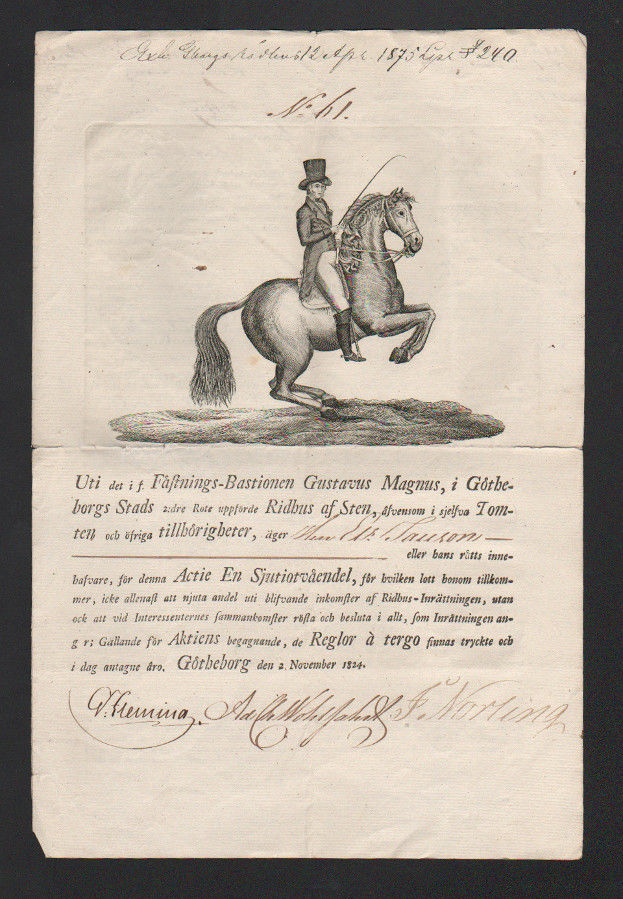 12 Apr. 1875 240
No 61.
Uti det i f. Fåſtnings-Baſtionen Gustavus Magnus, i Götheborgs
borgs Stads 2:dre Rote uppförde Ridhus af Sten, åfvensom i sjelfva Tom-
ten och öfriga tillhörigheter, äger Herr
eller hans rätts inne-
hafvare, för denna Actie En Sjutiotvåendel, för hvilken lott honom tillkom-
mer, icke allenaſt att njuta andel uti blifvande inkomſter af Ridhus-Inrättningen, utan
ock att vid Intereſſenternes ſammankomſter röſta och besluta i allt, ſom Inrättningen an-
g r; Gällande för Aktiens begagnande, de Reglor à tergo finnas tryckte och
i dag antagne äro. Götheborg den 2. November 1824.
F Norling